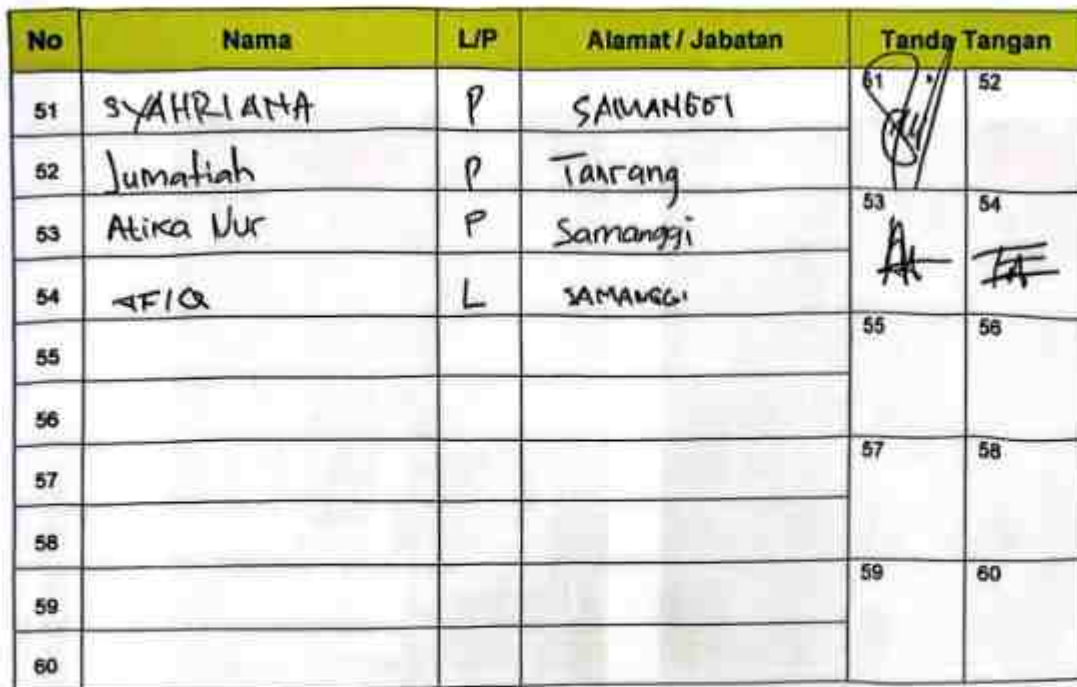 No Nama L/P Alamat / Jabatan Tanda Tangan
51 SYAHRIANA P SAMANGGI 51 52
52 Jumatiah P Tanrang
53 Atika Nur P Samanggi 53 54
54 AFIQ L SAMANGGI
55 55 56
56
57 57 58
58
59 59 60
60